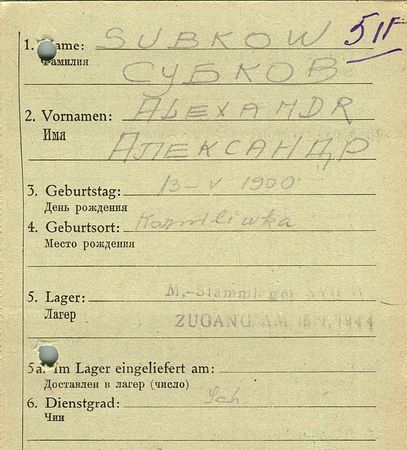 1. Name: SUBKOW 511
Фамилия СУБКОВ
2. Vornamen: ALEXANDR
Имя АЛЕКСАНДР
3. Geburtstag: 13-V 1900
День рождения
4. Geburtsort:
Место рождения
5. Lager: M.-Stammlager
Лагер ZUGANG AM 1944
5a. Im Lager eingeliefert am:
Доставлен в лагер (число)
6. Dienstgrad:
Чин